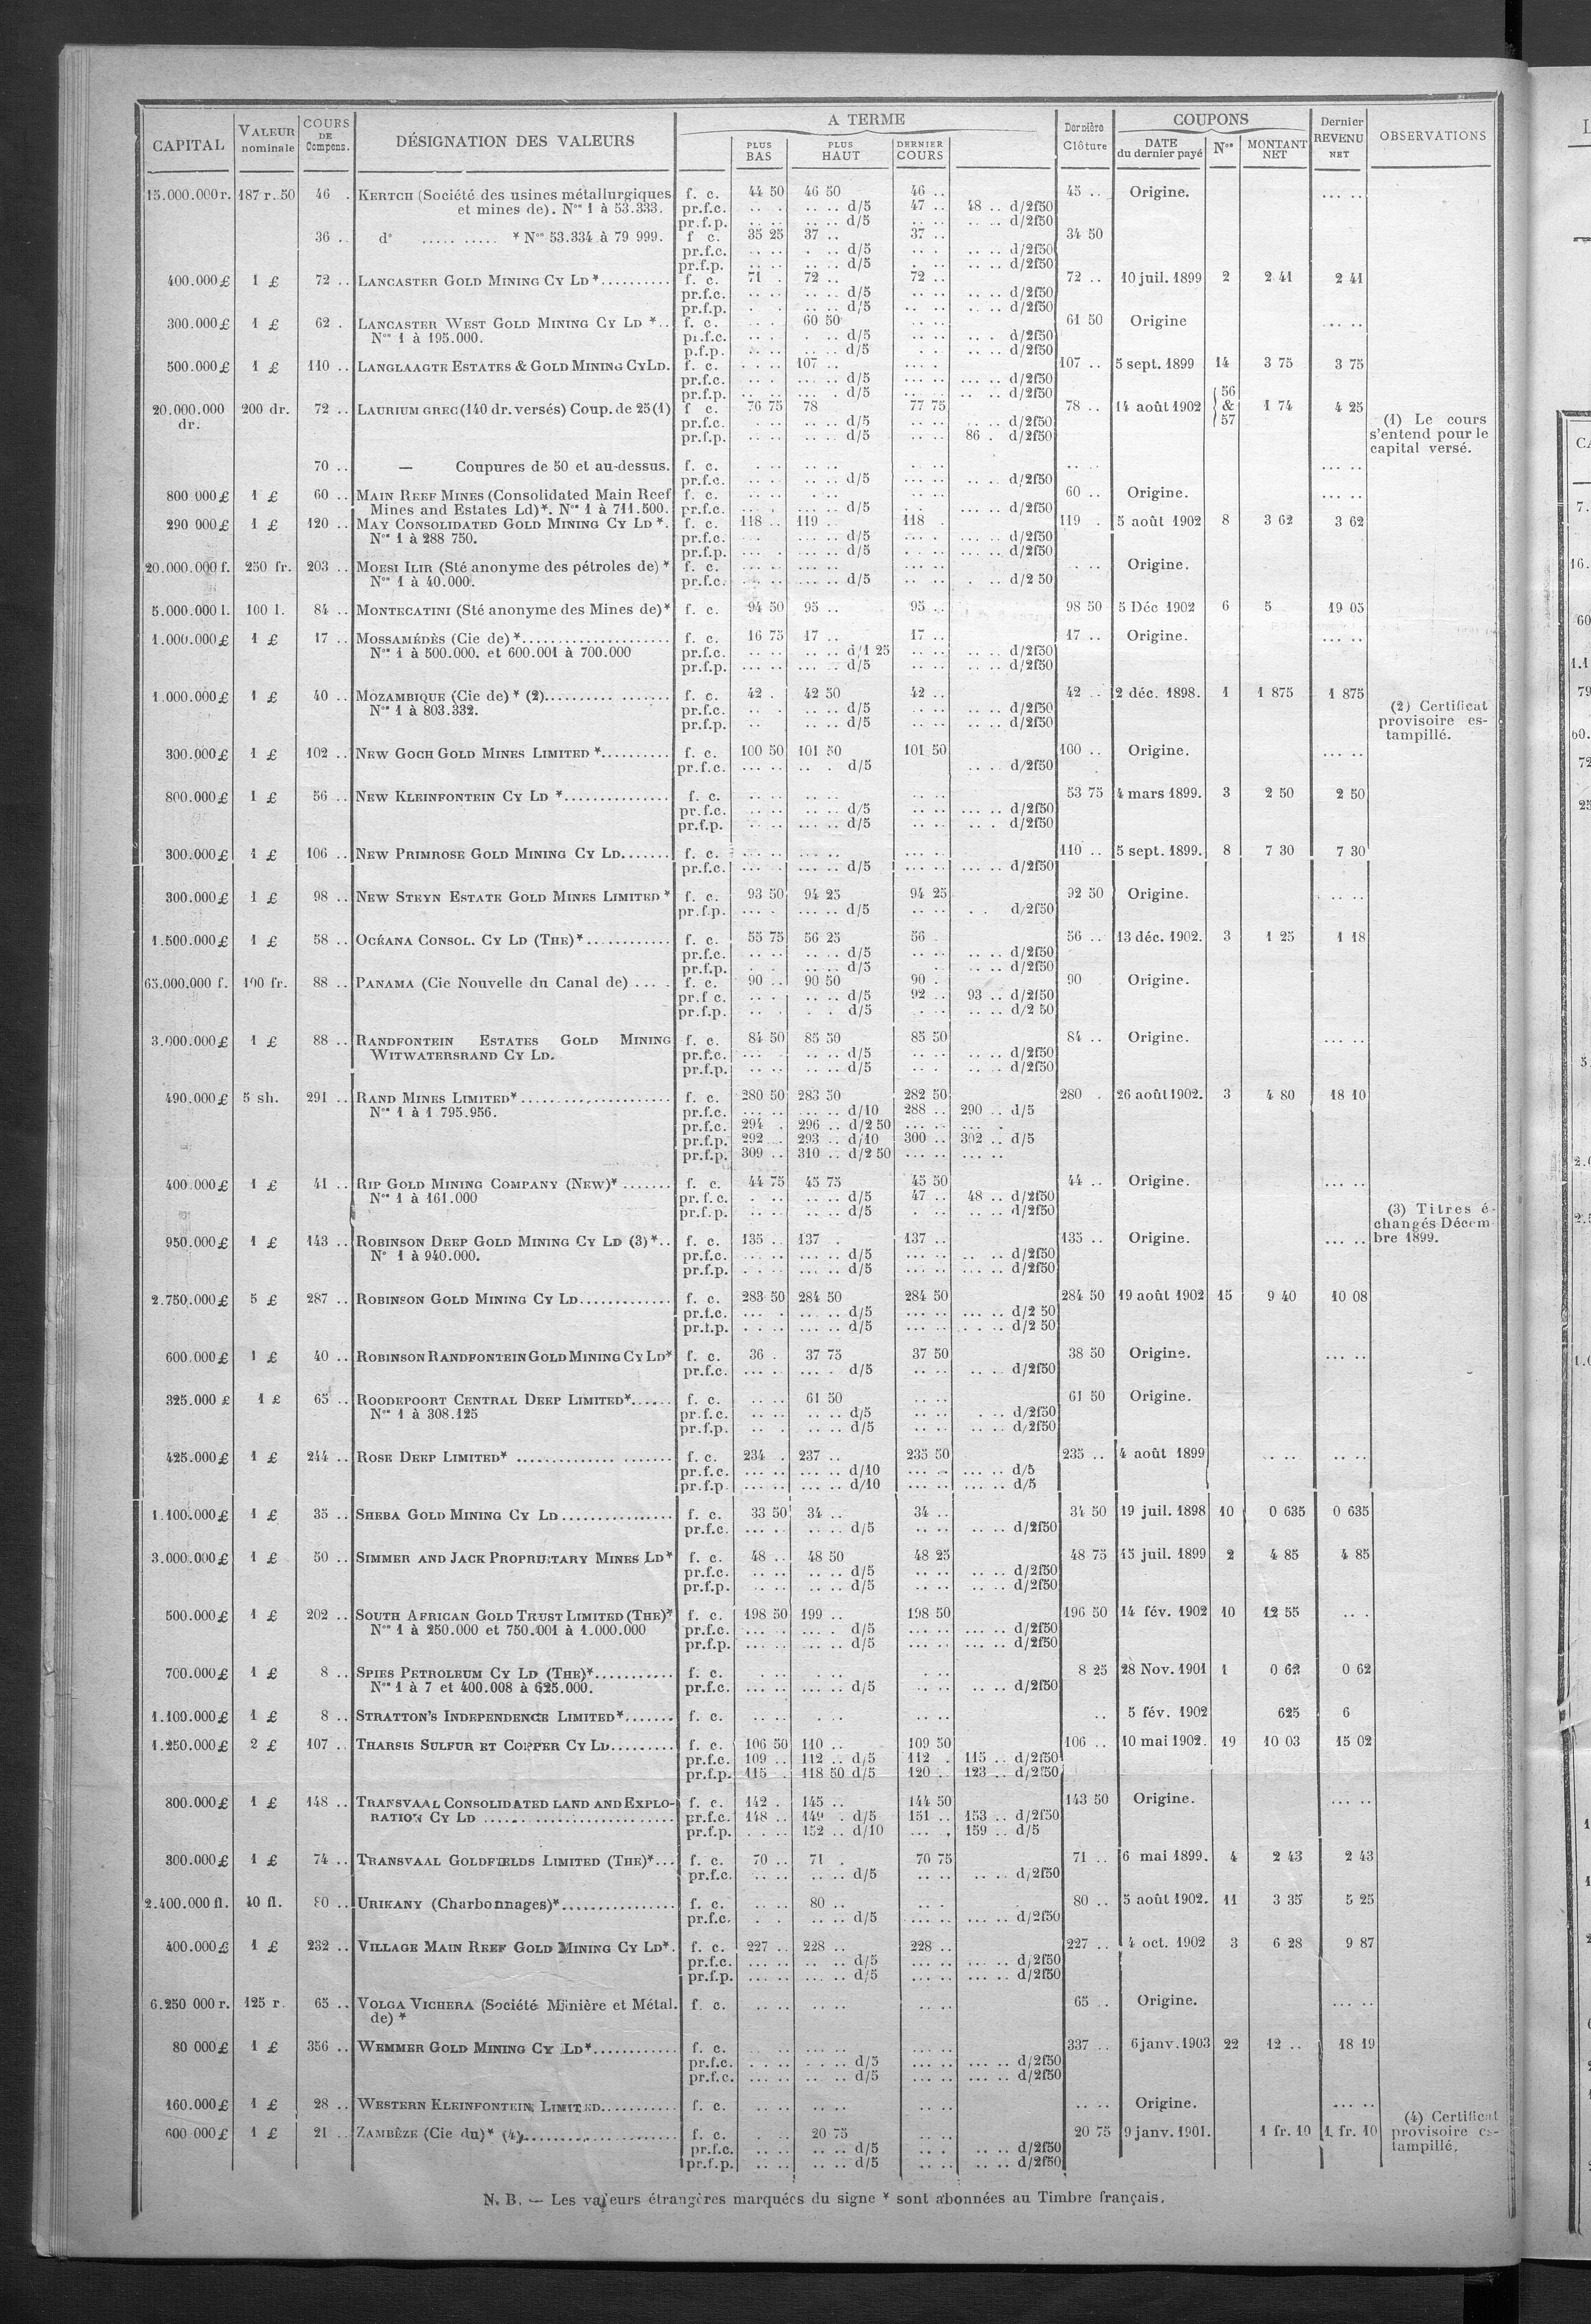 CAPITAL | VALEUR nominale | COURS DE Compens. | DÉSIGNATION DES VALEURS | A TERME | PLUS BAS | PLUS HAUT | DERNIER COURS | Dernière Clôture | COUPONS | DATE du dernier payé | Nos | MONTANT NET | Dernier REVENU NET | OBSERVATIONS
15.000.000 r. 187 r. 50 46 . KERTCH (Société des usines métallurgiques f. c. 44 50 46 50 46 .. 45 .. Origine. ... ..
et mines de). Nos 1 à 53.333. pr.f.c. .. . .. .. d/5 47 .. 48 .. d/2f50
pr.f.p. .. .. .. .. d/5 .. .. .. .. d/2f50
36 .. do ..... ..... * Nos 53.334 à 79 999. f c. 35 25 37 .. 37 .. 34 50
pr.f.c. .. .. . .. d/5 .. . .. .. d/2f50
pr.f.p. .. .. .. .. d/5 .. . .. .. d/2f50
400.000 £ 1 £ 72 .. LANCASTER GOLD MINING CY LD *.......... f. c. 71 . 72 .. 72 .. 72 .. 10 juil. 1899 2 2 41 2 41
pr.f.c. .. .. .. .. d/5 .. .. .. .. d/2f50
pr.f.p. . . .. .. d/5 .. .. .. .. d/2f50
300.000 £ 1 £ 62 . LANCASTER WEST GOLD MINING CY LD *.. f. c. .. . 60 50 .. .. 61 50 Origine ... ..
Nos 1 à 195.000. pr.f.c. .. . . .. d/5 .. .. .. . d/2f50
p.f.p. .. .. .. .. d/5 . . .. .. d/2f50
500.000 £ 1 £ 110 .. LANGLAAGTE ESTATES & GOLD MINING CY LD. f. c. . .. 107 .. ... . 107 .. 5 sept. 1899 14 3 75 3 75
pr.f.c. ... . ... .. d/5 ... .. ... .. d/2f50
pr.f.p. ... .. ... . d/5 ... .. ... .. d/2f50
20.000.000 dr. 200 dr. 72 .. LAURIUM GREC (140 dr. versés) Coup. de 25 (1) f c. 76 75 78 77 75 78 .. 14 août 1902 56 & 57 1 74 4 25
pr.f.c. .. . .. .. d/5 .. .. .. .. d/2f50
pr.f.p. .. . .. .. d/5 .. .. 86 . d/2f50
(1) Le cours
s'entend pour le
capital versé.
70 .. — Coupures de 50 et au-dessus. f. c. . .. .. .. .. .. .. .. ... ..
pr.f.c. . .. .. .. d/5 .. .. .. .. d/2f50
800 000 £ 1 £ 60 .. MAIN REEF MINES (Consolidated Main Reef f. c. .. .. .. .. .. .. 60 .. Origine. ... ..
Mines and Estates Ld)*. Nos 1 à 711.500. pr.f.c. .. . .. .. d/5 .. . .. .. d/2f50
290 000 £ 1 £ 120 .. MAY CONSOLIDATED GOLD MINING CY LD *. f. c. 118 .. 119 .. 118 . 119 . 5 août 1902 8 3 62 3 62
Nos 1 à 288 750. pr.f.c. ... . ... .. d/5 ... . ... .. d/2f50
pr.f.p. ... . ... .. d/5 ... . ... .. d/2f50
20.000.000 f. 250 fr. 203 .. MOESI ILIR (Sté anonyme des pétroles de) * f. c. ... .. ... .. ... .. . .. Origine.
Nos 1 à 40.000. pr.f.c. .. .. ... .. d/5 ... .. . .. d/2 50
5.000.000 l. 100 l. 84 .. MONTECATINI (Sté anonyme des Mines de)* f. c. 94 50 95 .. 95 .. 98 50 5 Déc 1902 6 5 19 05
1.000.000 £ 1 £ 17 .. MOSSAMÉDÈS (Cie de) *..................... f. c. 16 75 17 .. 17 .. 17 .. Origine. ... ..
Nos 1 à 500.000. et 600.001 à 700.000 pr.f.c. .. .. .. .. d/1 25 .. .. .. .. d/2f50
pr.f.p. .. .. .. .. d/5 .. .. .. .. d/2f50
1.000.000 £ 1 £ 40 .. MOZAMBIQUE (Cie de) * (2).................. f. c. 42 . 42 50 42 .. 42 .. 2 déc. 1898. 1 1 875 1 875
Nos 1 à 803.332. pr.f.c. .. . .. .. d/5 .. .. .. .. d/2f50
pr.f.p. .. .. .. d/5 .. .. .. .. d/2f50
(2) Certificat
provisoire es-
tampillé.
300.000 £ 1 £ 102 .. NEW GOCH GOLD MINES LIMITED *.......... f. c. 100 50 101 50 101 50 100 .. Origine. ... ..
pr.f.c. ... .. .. . d/5 .. . d/2f50
800.000 £ 1 £ 56 .. NEW KLEINFONTEIN CY LD *............... f. c. .. .. .. .. .. .. 53 75 4 mars 1899. 3 2 50 2 50
pr.f.c. .. .. ... .. d/5 .. .. ... .. d/2f50
pr.f.p. .. .. ... .. d/5 .. .. .. . d/2f50
300.000 £ 1 £ 106 .. NEW PRIMROSE GOLD MINING CY LD....... f. c. ... .. ... .. ... .. 110 .. 5 sept. 1899. 8 7 30 7 30
pr.f.c. ... .. ... .. d/5 ... .. ... .. d/2f50
300.000 £ 1 £ 98 .. NEW STEYN ESTATE GOLD MINES LIMITED * f. c. 93 50 94 25 94 25 92 50 Origine. . .. ..
pr.f.p. ... . ... .. d/5 .. .. . . d/2f50
1.500.000 £ 1 £ 58 .. OCÉANA CONSOL. CY LD (THE)*............ f. c. 55 75 56 25 56 . 56 .. 13 déc. 1902. 3 1 25 1 18
pr.f.c. .. .. .. .. d/5 .. .. .. .. d/2f50
pr.f.p. . . .. .. d/5 . .. .. .. d/2f50
65.000.000 f. 100 fr. 88 .. PANAMA (Cie Nouvelle du Canal de) .... . f. c. 90 .. 90 50 90 . 90 Origine.
pr.f c. .. . .. .. d/5 92 .. 93 .. d/2f50
pr.f.p. .. . . . d/5 . .. .. .. d/2 50
3.000.000 £ 1 £ 88 .. RANDFONTEIN ESTATES GOLD MINING f. c. 84 50 85 50 85 50 84 .. Origine. ... ..
WITWATERSRAND CY LD. pr.f.c. ... .. .. d/5 .. .. .. .. d/2f50
pr.f.p. .. .. .. .. d/5 . .. .. .. d/2f50
490.000 £ 5 sh. 291 .. RAND MINES LIMITED*..................... f. c. 280 50 283 50 282 50 280 . 26 août 1902. 3 4 80 18 10
Nos 1 à 1 795.956. pr.f.c. ... .. ... .. d/10 288 .. 290 .. d/5
pr.f.c. 294 . 296 .. d/2 50 ... .. ... .
pr.f.p. 292 . 293 .. d/10 300 .. 302 .. d/5
pr.f.p. 309 .. 310 .. d/2 50 ... .. ... ..
400.000 £ 1 £ 41 .. RIP GOLD MINING COMPANY (NEW)* ....... f. c. 44 75 45 75 45 50 44 .. Origine. ... ..
Nos 1 à 161.000 pr. f. c. . .. .. .. d/5 47 .. 48 .. d/2f50
pr.f.p. .. .. .. .. d/5 . .. .. .. d/2f50
(3) Titres é-
changés Décem
bre 1899.
950.000 £ 1 £ 143 .. ROBINSON DEEP GOLD MINING CY LD (3)*.. f. c. 135 .. 137 . 137 .. 135 .. Origine. ... ..
No 1 à 940.000. pr.f.c. . .. .. ... .. d/5 ... .. .. .. d/2f50
pr.f.p. . . .. ... .. d/5 ... .. ... .. d/2f50
2.750.000 £ 5 £ 287 .. ROBINSON GOLD MINING CY LD............. f. c. 283 50 284 50 284 50 284 50 19 août 1902 15 9 40 10 08
pr.f.c. ... . ... .. d/5 ... .. ... .. d/2 50
pr.f.p. . . .. ... .. d/5 ... .. . . .. d/2 50
600.000 £ 1 £ 40 .. ROBINSON RANDFONTEIN GOLD MINING CY LD* f. c. 36 . 37 75 37 50 38 50 Origine. ... ..
pr.f.c. ... . ... .. d/5 .. .. .. .. d/2f50
325.000 £ 1 £ 65 .. ROODEPOORT CENTRAL DEEP LIMITED*...... f. c. .. .. 61 50 .. .. 61 50 Origine.
Nos 1 à 308.125 pr.f.c. .. .. .. .. d/5 .. .. . .. d/2f50
pr.f.p. .. . .. .. d/5 .. .. .. .. d/2f50
425.000 £ 1 £ 244 .. ROSE DEEP LIMITED* .............. ....... f. c. 234 . 237 .. 235 50 235 .. 4 août 1899 .. .. .. ..
pr.f.c. ... .. ... .. d/10 ... .. ... .. d/5
pr.f.p. ... .. ... .. d/10 ... .. ... .. d/5
1.100.000 £ 1 £ 35 .. SHEBA GOLD MINING CY LD................ f. c. 33 50 34 .. 34 .. 34 50 19 juil. 1898 10 0 635 0 635
pr.f.c. ... . .. .. d/5 .. .. .. .. d/2f50
3.000.000 £ 1 £ 50 .. SIMMER AND JACK PROPRIETARY MINES LD* f. c. 48 .. 48 50 48 25 48 75 15 juil. 1899 2 4 85 4 85
pr.f.c. .. .. .. .. d/5 .. .. .. .. d/2f50
pr.f.p. .. .. .. .. d/5 .. .. .. .. d/2f50
500.000 £ 1 £ 202 .. SOUTH AFRICAN GOLD TRUST LIMITED (THE)* f. c. 198 50 199 .. 198 50 196 50 14 fév. 1902 10 12 55 .. .
Nos 1 à 250.000 et 750.001 à 1.000.000 pr.f.c. ... . ... . d/5 ... .. ... .. d/2f50
pr.f.p. ... . ... .. d/5 ... .. ... .. d/2f50
700.000 £ 1 £ 8 .. SPIES PETROLEUM CY LD (THE)*........... f. c. . .. . .. . .. 8 25 28 Nov. 1901 1 0 62 0 62
Nos 1 à 7 et 400.008 à 625.000. pr.f.c. ... .. ... .. d/5 .. .. .. .. d/2f50
1.100.000 £ 1 £ 8 .. STRATTON'S INDEPENDENCE LIMITED*....... f. c. .. .. . .. .. .. .. 5 fév. 1902 625 6
1.250.000 £ 2 £ 107 . THARSIS SULFUR ET COPPER CY LD......... f. c. 106 50 110 .. 109 50 106 .. 10 mai 1902. 19 10 03 15 02
pr.f.c. 109 .. 112 .. d/5 112 . 115 .. d/2f50
pr.f.p. 115 . 118 50 d/5 120 . 123 .. d/2f50
800.000 £ 1 £ 148 .. TRANSVAAL CONSOLIDATED LAND AND EXPLO- f. c. 142 . 145 .. 144 50 143 50 Origine. ... ..
RATION CY LD ............................. pr.f.c. 148 .. 149 . d/5 151 .. 153 .. d/2f50
pr.f.p. . . .. 152 .. d/10 ... . 159 .. d/5
300.000 £ 1 £ 74 .. TRANSVAAL GOLDFIELDS LIMITED (THE)*... f. c. 70 .. 71 . 70 75 71 .. 6 mai 1899. 4 2 43 2 43
pr.f.c. .. .. .. .. d/5 .. .. .. .. d/2f50
2.400.000 fl. 40 fl. 80 .. URIKANY (Charbonnages)*................ f. c. 80 .. .. . 80 .. 5 août 1902. 11 3 35 5 25
pr.f.c. . . .. .. d/5 ... .. ... .. d/2f50
400.000 £ 1 £ 232 .. VILLAGE MAIN REEF GOLD MINING CY LD*. f. c. 227 .. 228 .. 228 .. 227 .. 4 oct. 1902 3 6 28 9 87
pr.f.c. ... .. .. .. d/5 ... .. ... .. d/2f50
pr.f.p. ... .. ... .. d/5 ... .. ... .. d/2f50
6.250 000 r. 125 r. 65 .. VOLGA VICHERA (Société Minière et Métal. f. c. .. .. .. .. .. .. 65 .. Origine. ... ..
de) *
80 000 £ 1 £ 356 .. WEMMER GOLD MINING CY LD*............ f. c. ... .. ... .. ... .. 337 .. 6 janv. 1903 22 12 .. 18 19
pr.f.c. . . .. . . .. d/5 ... .. ... .. d/2f50
pr.f.c. ... .. ... .. d/5 ... .. ... .. d/2f50
160.000 £ 1 £ 28 .. WESTERN KLEINFONTEIN LIMITED.......... f. c. .. .. .. .. .. .. .. .. Origine. ... ..
600 000 £ 1 £ 21 .. ZAMBÈZE (Cie du)* (4)................... f. c. . .. 20 75 .. .. 20 75 9 janv. 1901. 1 fr. 10 1 fr. 10
pr.f.c. .. .. .. .. d/5 .. . .. .. d/2f50
pr.f.p. .. .. .. .. d/5 .. .. .. .. d/2f50
(4) Certificat
provisoire es-
tampillé.
N. B. — Les valeurs étrangères marquées du signe * sont abonnées au Timbre français.